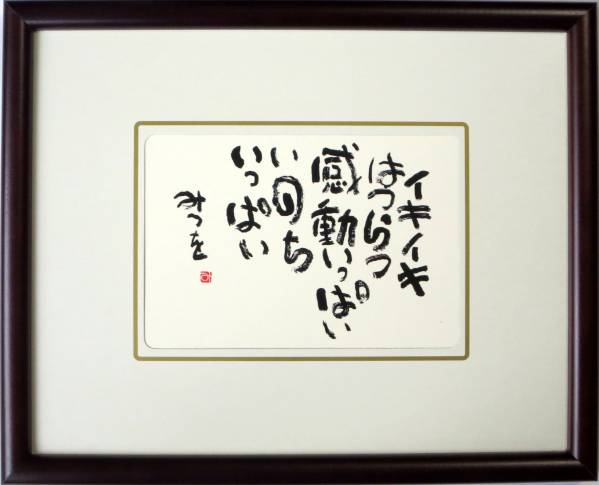 イキイキ
はつらつ
感動いっぱい
いのち
いっぱい
みつを